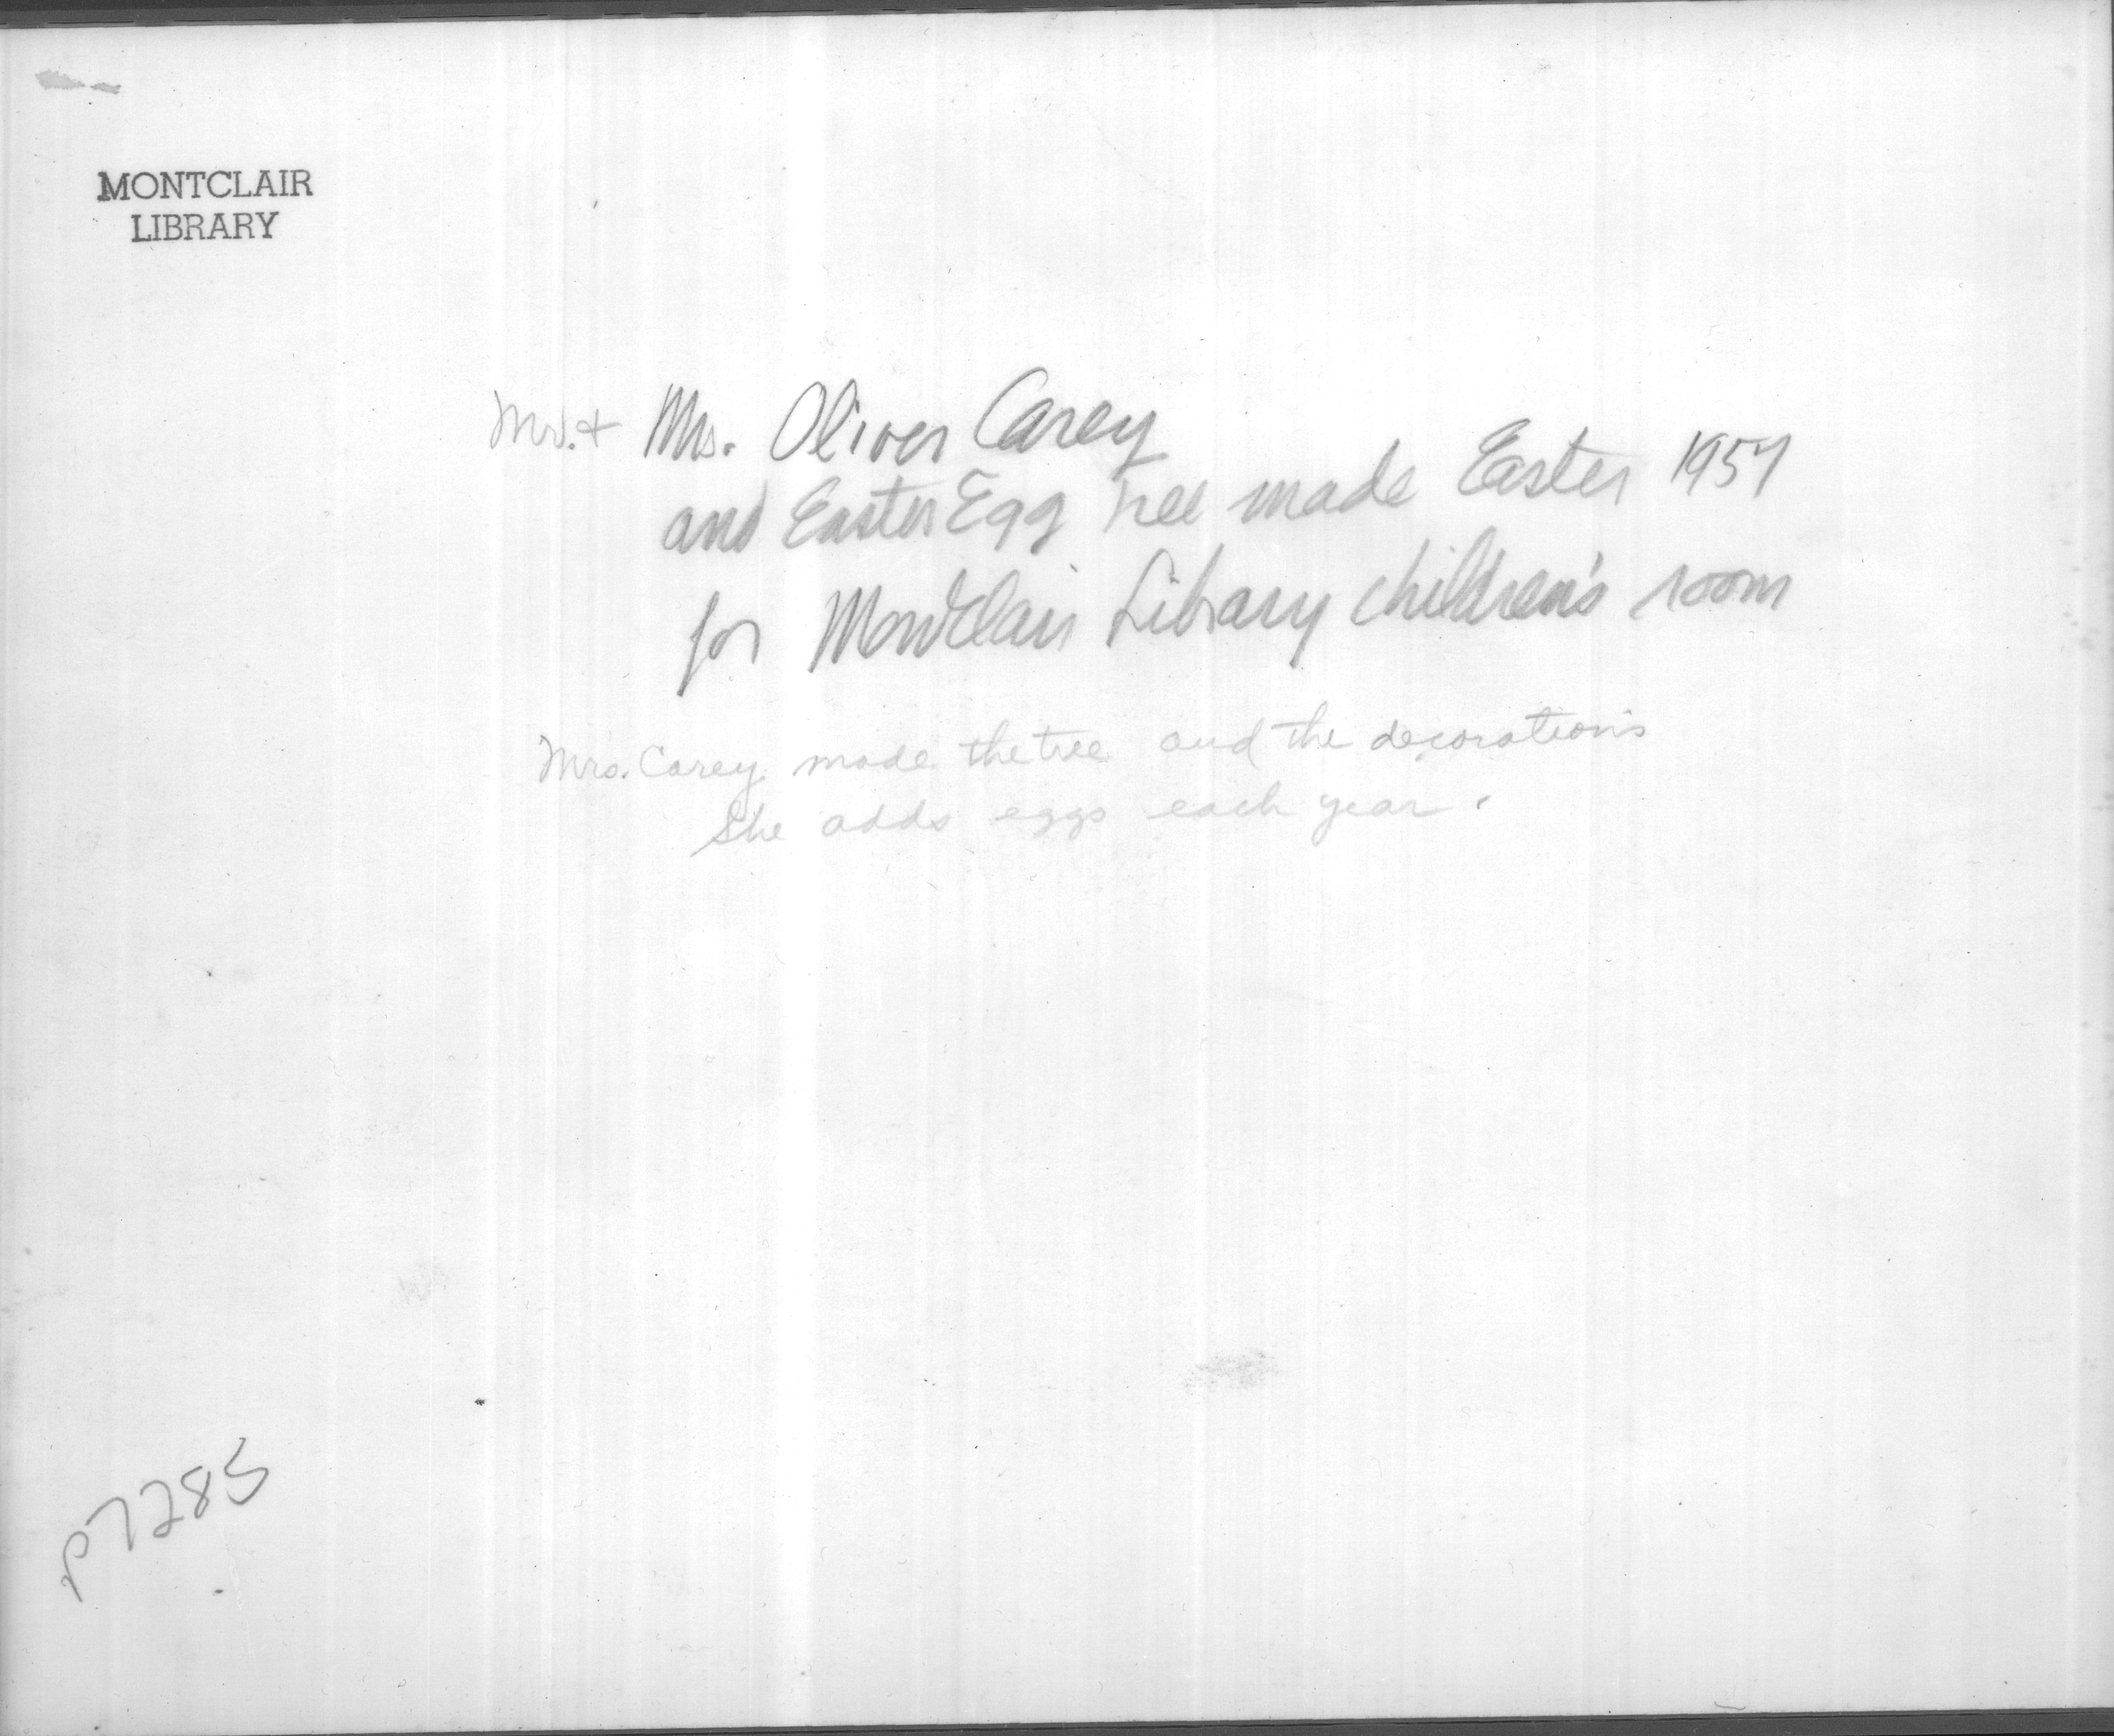 MONTCLAIR
LIBRARY
Mr. + Mrs. Oliver Carey
and Easter Egg Tree made Easter 1957
for Montclair Library children's room
Mrs. Carey made the tree and the decorations
She adds eggs each year.
P7285